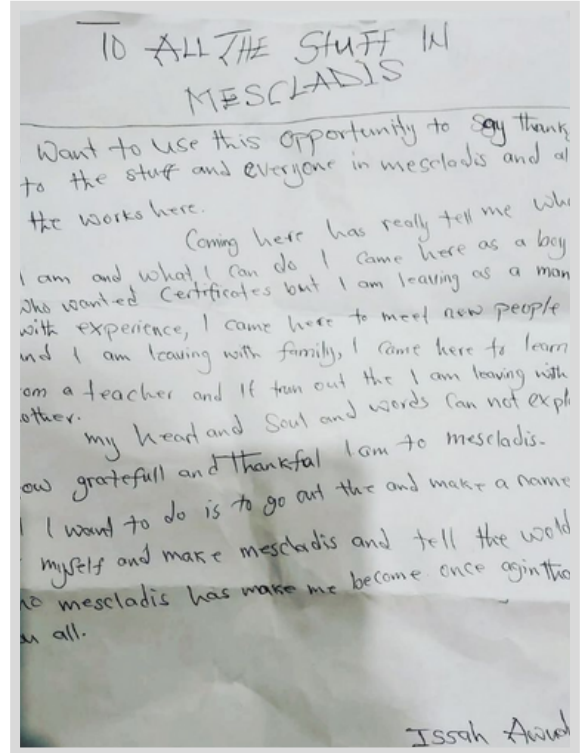 TO ALL THE Stuff IN
MESCLADIS
Want to use this opportunity to say thank
to the stuff and everyone in mescladis and al
the works here.
Coming here has really tell me wh
I am and what I can do I came here as a boy
who wanted certificates but I am leaving as a man
with experience, I came here to meet new people
nd I am leaving with family, I came here to learn
om a teacher and If trun out the I am leaving with
other.
my heart and Soul and words Can not expl
ow gratefull and Thankful I am to mescladis.
I want to do is to go out the and make a name
myself and make mescladis and tell the wold
mescladis has make me become once agin tha
u all.
Issah Awud